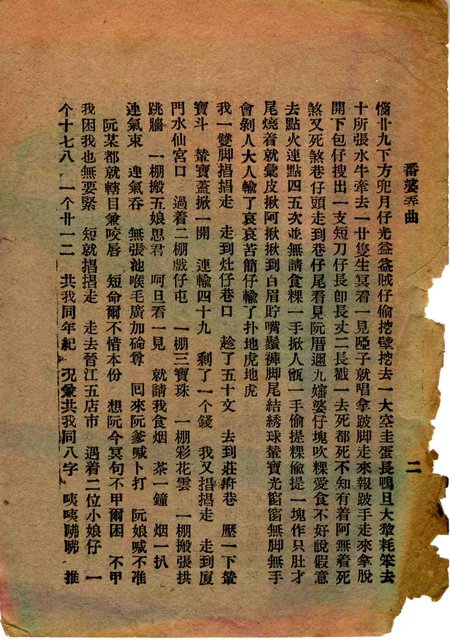 番婆弄曲
二
惱廿九下方兜月仔光益益賊仔偷挖壁挖去一大空圭蛋長鴨旦大犂耗笨去
十所張水牛牽去一廿隻生冥看一見啞子就唱拿跛脚走來報跛手走來拿脫
開下包仔搜出一支短刀仔長卽長丈二長戳一去死都死不知有着阿無着死
煞又死煞巷仔頭走到巷仔尾看見阮厝邊九嬸婆仔塊吹粿愛食不好說假意
去點火連點四五次並無請食粿一手掀人甑一手偷提粿偸提一塊作只肚才
尾燒着就彙皮掀阿掀掀到百眉貯嘴鬚褲脚尾結綉球輦寶光窗窗無脚無手
會剝人大人輸了哀哀苦簡仔輸了扑地虎地虎
我一雙脚搢搢走　走到灶仔巷口　趁了五十文　去到莊府巷　壓一下輦
寶斗　輦寶蓋掀一開　連輸四十九　剩了一个錢　我又搢搢走　走到厦
門水仙宮口　過着二棚戲仔屯　一棚三寶珠　一棚彩花雲　一棚搬張拱
跳牆　一棚搬五娘思君　呵旦看一見　就請我食烟　茶一鐘　烟一扒
連氣束　連氣吞　無張池喉毛廣加碖尊　回來阮爹喊卜打　阮娘喊不准
阮某都就轄目兼咬唇　短命爾不惜本份　想阮今冥句不甲爾困　不甲
我困我也無要緊　短就搢搢走　走去晉江五店市　遇着二位小娘仔　一
个十七八　一个廿一二　共我同年紀　況兼共我同八字　咦咦睇睇　推